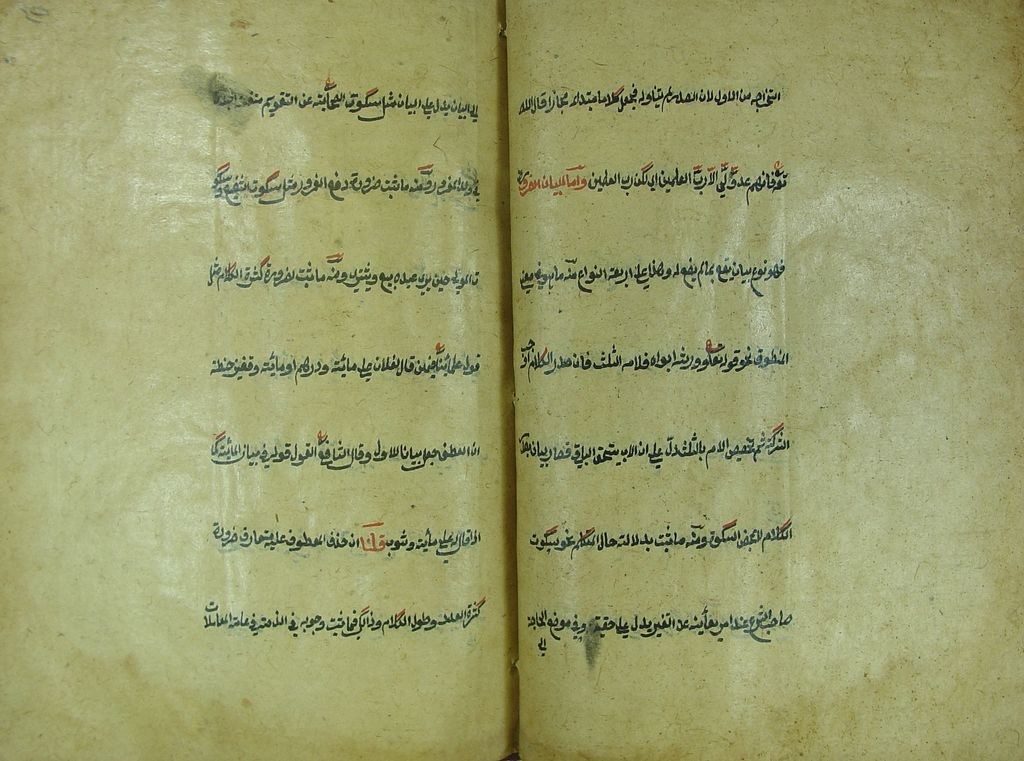 استخراجه من الاول لان الصدر لم يتناوله فجعل كلاما مبتداء مجازا قال الله
تع فانهم عدو لي الا رب العلمين اي لكن رب العلمين واما بيان الضرورة
فهو نوع بيان يقع بما لم يوضع له وهذا على اربعة انواع منه ما هو في معنى
المنطوق نحو قوله تعالى وورثه ابواه فلامه الثلث فان صدر الكلام اوجب
الشركة ثم تخصيص الام بالثلث دل على ان الاب يستحق الباقي فصار بيانا بصدر
الكلام لا بمحض السكوت ومنه ما ثبت بدلالة حال المتكلم نحو سكوت
صاحب الشرع عند امر يعاينه عن التغيير يدل على حقيته وفي موضع الحاجة
الى
الى البيان يدل على البيان مثل سكوت الصحابة عن التقويم منفعة البدن
في ولد المغرور ومنه ما ثبت ضرورة دفع الغرور مثل سكوت الشفيع وسكوت
المولى حين يرى عبده يبيع ويشتري ومنه ما ثبت لضرورة كثرة الكلام مثل
قول علمائنا فيمن قال لفلان علي مائة ودرهم او مائة وقفيز حنطة
ان العطف جعل بيانا للاول وقال الشافعي القول قوله في بيان المائة كما
اذا قال له علي مائة وثوب قلنا ان حذف المعطوف عليه متعارف ضرورة
كثرة العدد وطول الكلام وذلك فيما ثبت وجوبه في الذمة في عامة المعاملات